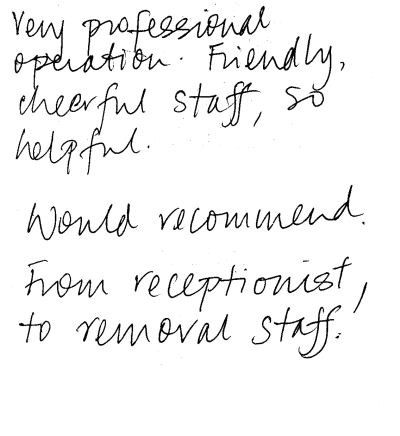 Very professional
operation. Friendly,
cheerful staff, so
helpful.
Would recommend.
From receptionist,
to removal staff.